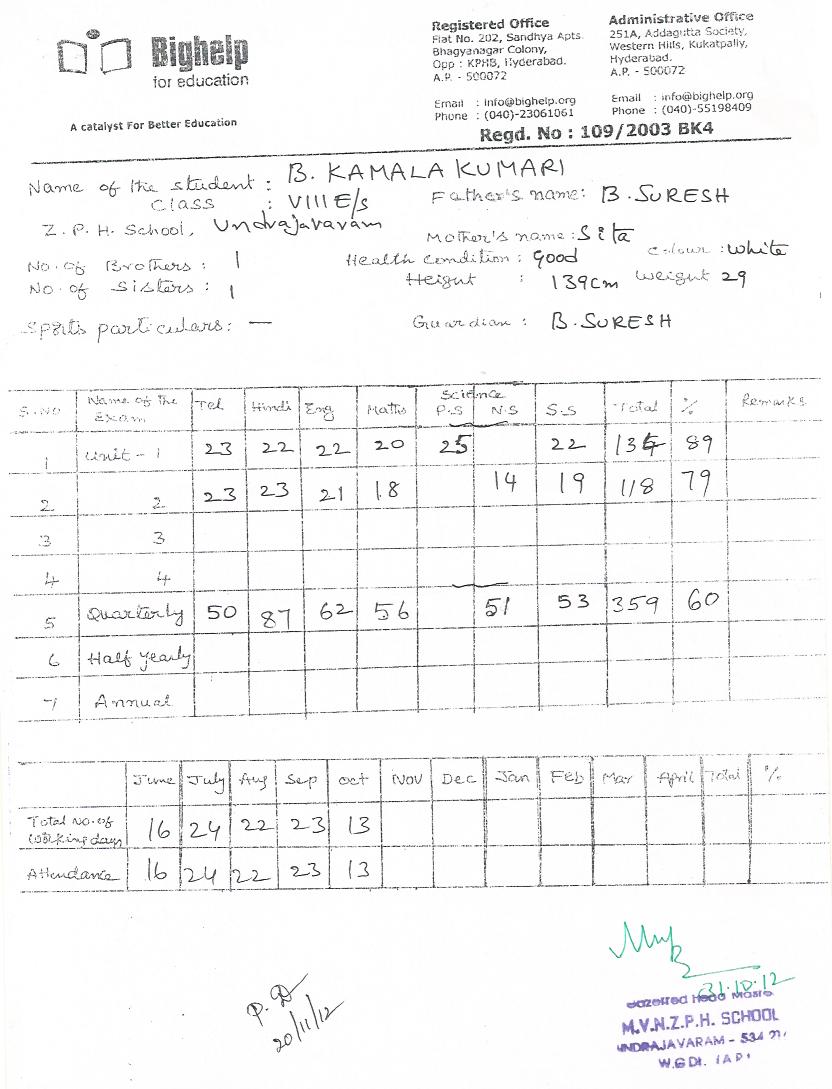 Bighelp
for education
A catalyst For Better Education
Registered Office
Flat No. 202, Sandhya Apts.
Bhagyanagar Colony,
Opp : KPHB, Hyderabad.
A.P. - 500072
Email : info@bighelp.org
Phone : (040)-23061061
Administrative Office
251A, Addagutta Society,
Western Hills, Kukatpally,
Hyderabad.
A.P. - 500072
Email : info@bighelp.org
Phone : (040)-55198409
Regd. No : 109/2003 BK4
Name of the student : B. KAMALA KUMARI
Class : VIII E/s Father's name: B. SURESH
Z. P. H. School, Undrajavaram
Mother's name: Sita
No. of Brothers : 1 Health condition : Good colour : White
No. of Sisters : 1 Height : 139cm weight 29
Sports particulars: — Guardian : B. SURESH
S.NO Name of the Exam Tel Hindi Eng Maths Science P.S N.S S.S Total % Remarks
1 Unit - 1 23 22 22 20 25 22 134 89
2 2 23 23 21 18 14 19 118 79
3 3
4 4
5 Quarterly 50 87 62 56 51 53 359 60
6 Half Yearly
7 Annual
June July Aug Sep Oct Nov Dec Jan Feb Mar April Total %
Total No. of working days 16 24 22 23 13
Attendance 16 24 22 23 13
P. D
20/11/12
31.10.12
Gazetted Head Maste
M.V.N.Z.P.H. SCHOOL
UNDRAJAVARAM - 534
W.G Dt. (A.P)